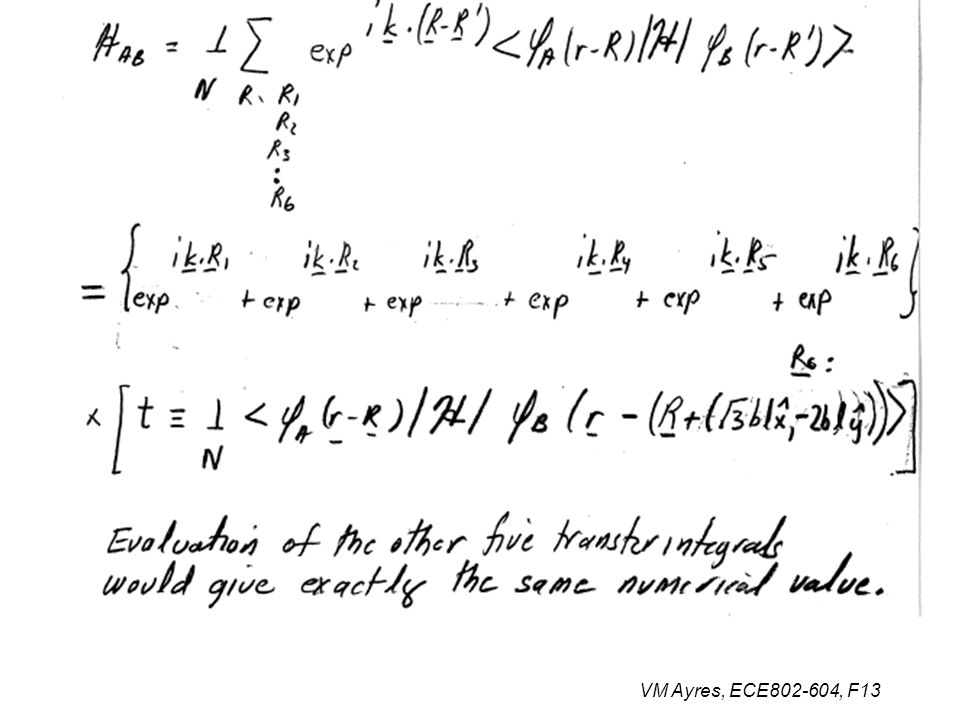 H_AB = 1/N Σ exp^{i k̲·(R̲-R̲')} <φ_A(r-R)|H| φ_B(r-R')>
R, R₁
R₂
R₃
⋮
R₆
= { exp^{i k̲·R̲₁} + exp^{i k̲·R̲₂} + exp^{i k̲·R̲₃} + exp^{i k̲·R̲₄} + exp^{i k̲·R̲₅} + exp^{i k̲·R̲₆} }
R̲₆:
× [ t ≡ 1/N <φ_A(r̲-R̲)|H| φ_B(r̲ - (R̲+(√3b|x̂, -2b|ŷ)))> ]
Evaluation of the other five transfer integrals
would give exactly the same numerical value.
VM Ayres, ECE802-604, F13